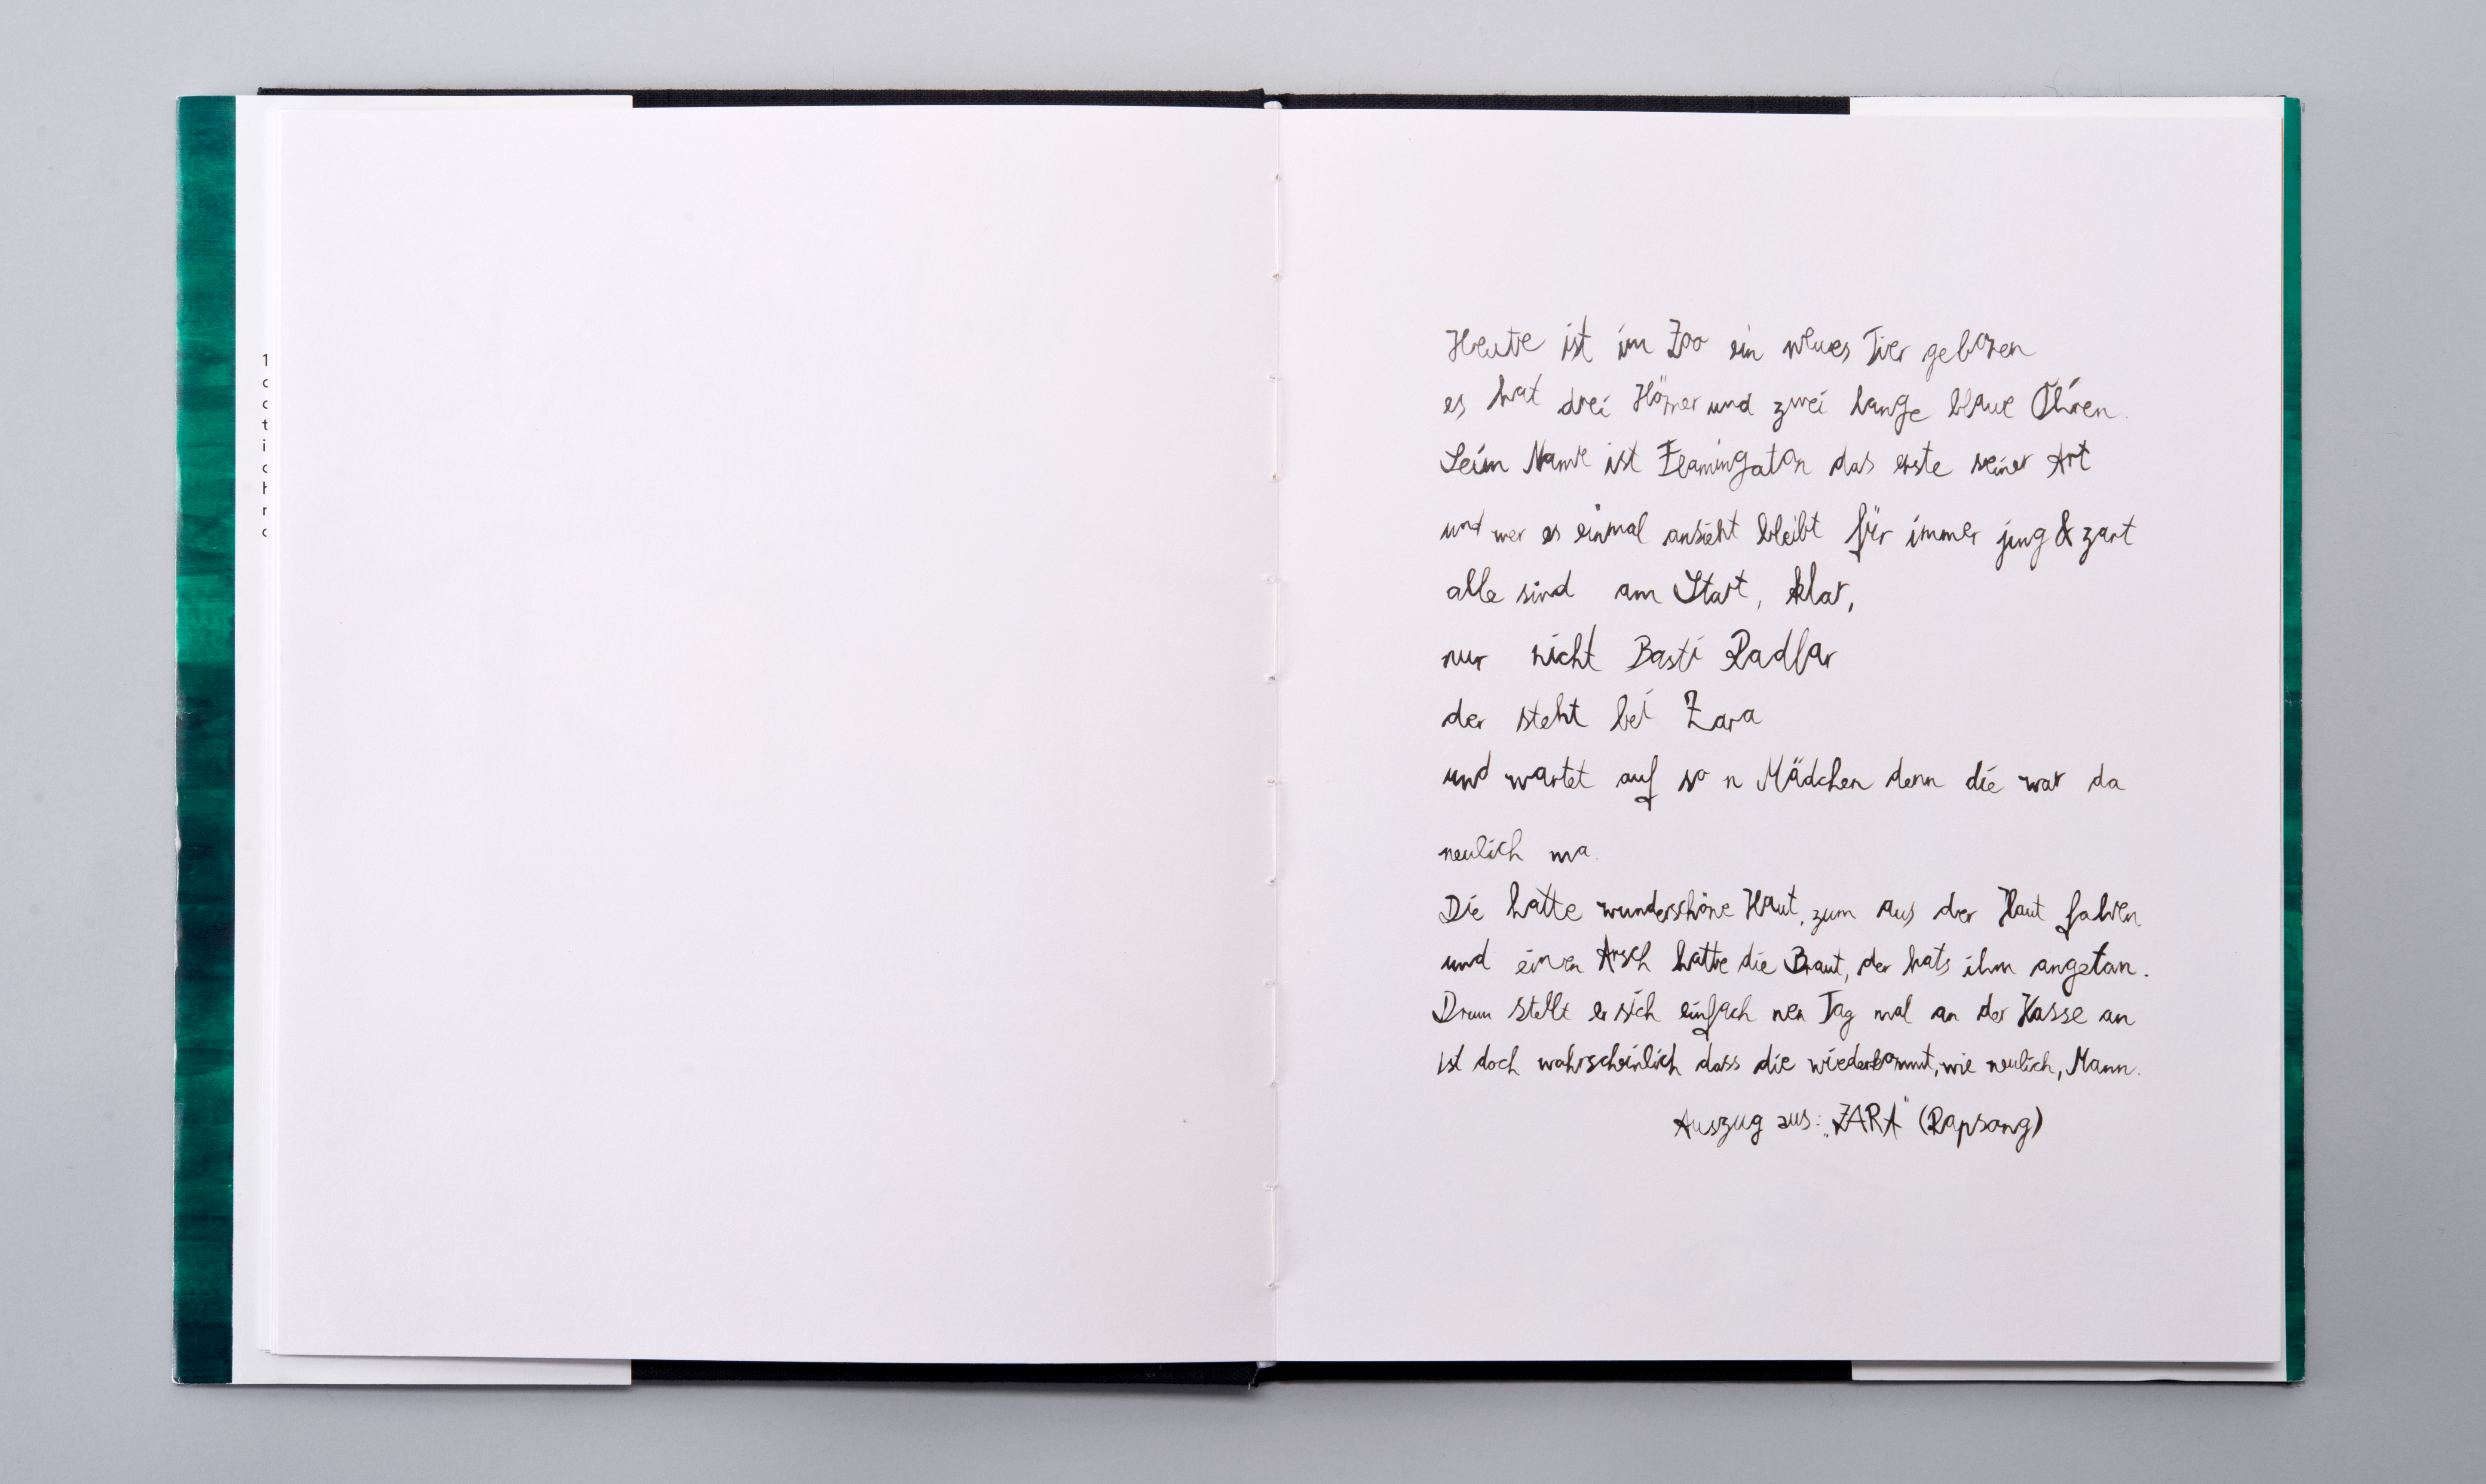 1
t
i
Heute ist im Zoo ein neues Tier geboren
es hat drei Hörner und zwei lange blaue Ohren.
Sein Name ist Flamingaton das erste seiner Art
und wer es einmal ansieht bleibt für immer jung & zart
alle sind am Start, klar,
nur nicht Basti Radlar
der steht bei Zara
und wartet auf so n Mädchen denn die war da
neulich ma.
Die hatte wunderschöne Haut, zum aus der Haut fahren
und einen Arsch hatte die Braut, der hats ihm angetan.
Drum stellt er sich einfach nen Tag mal an der Kasse an
ist doch wahrscheinlich dass die wiederkommt, wie neulich, Mann.
Auszug aus: „ZARA" (Rapsong)